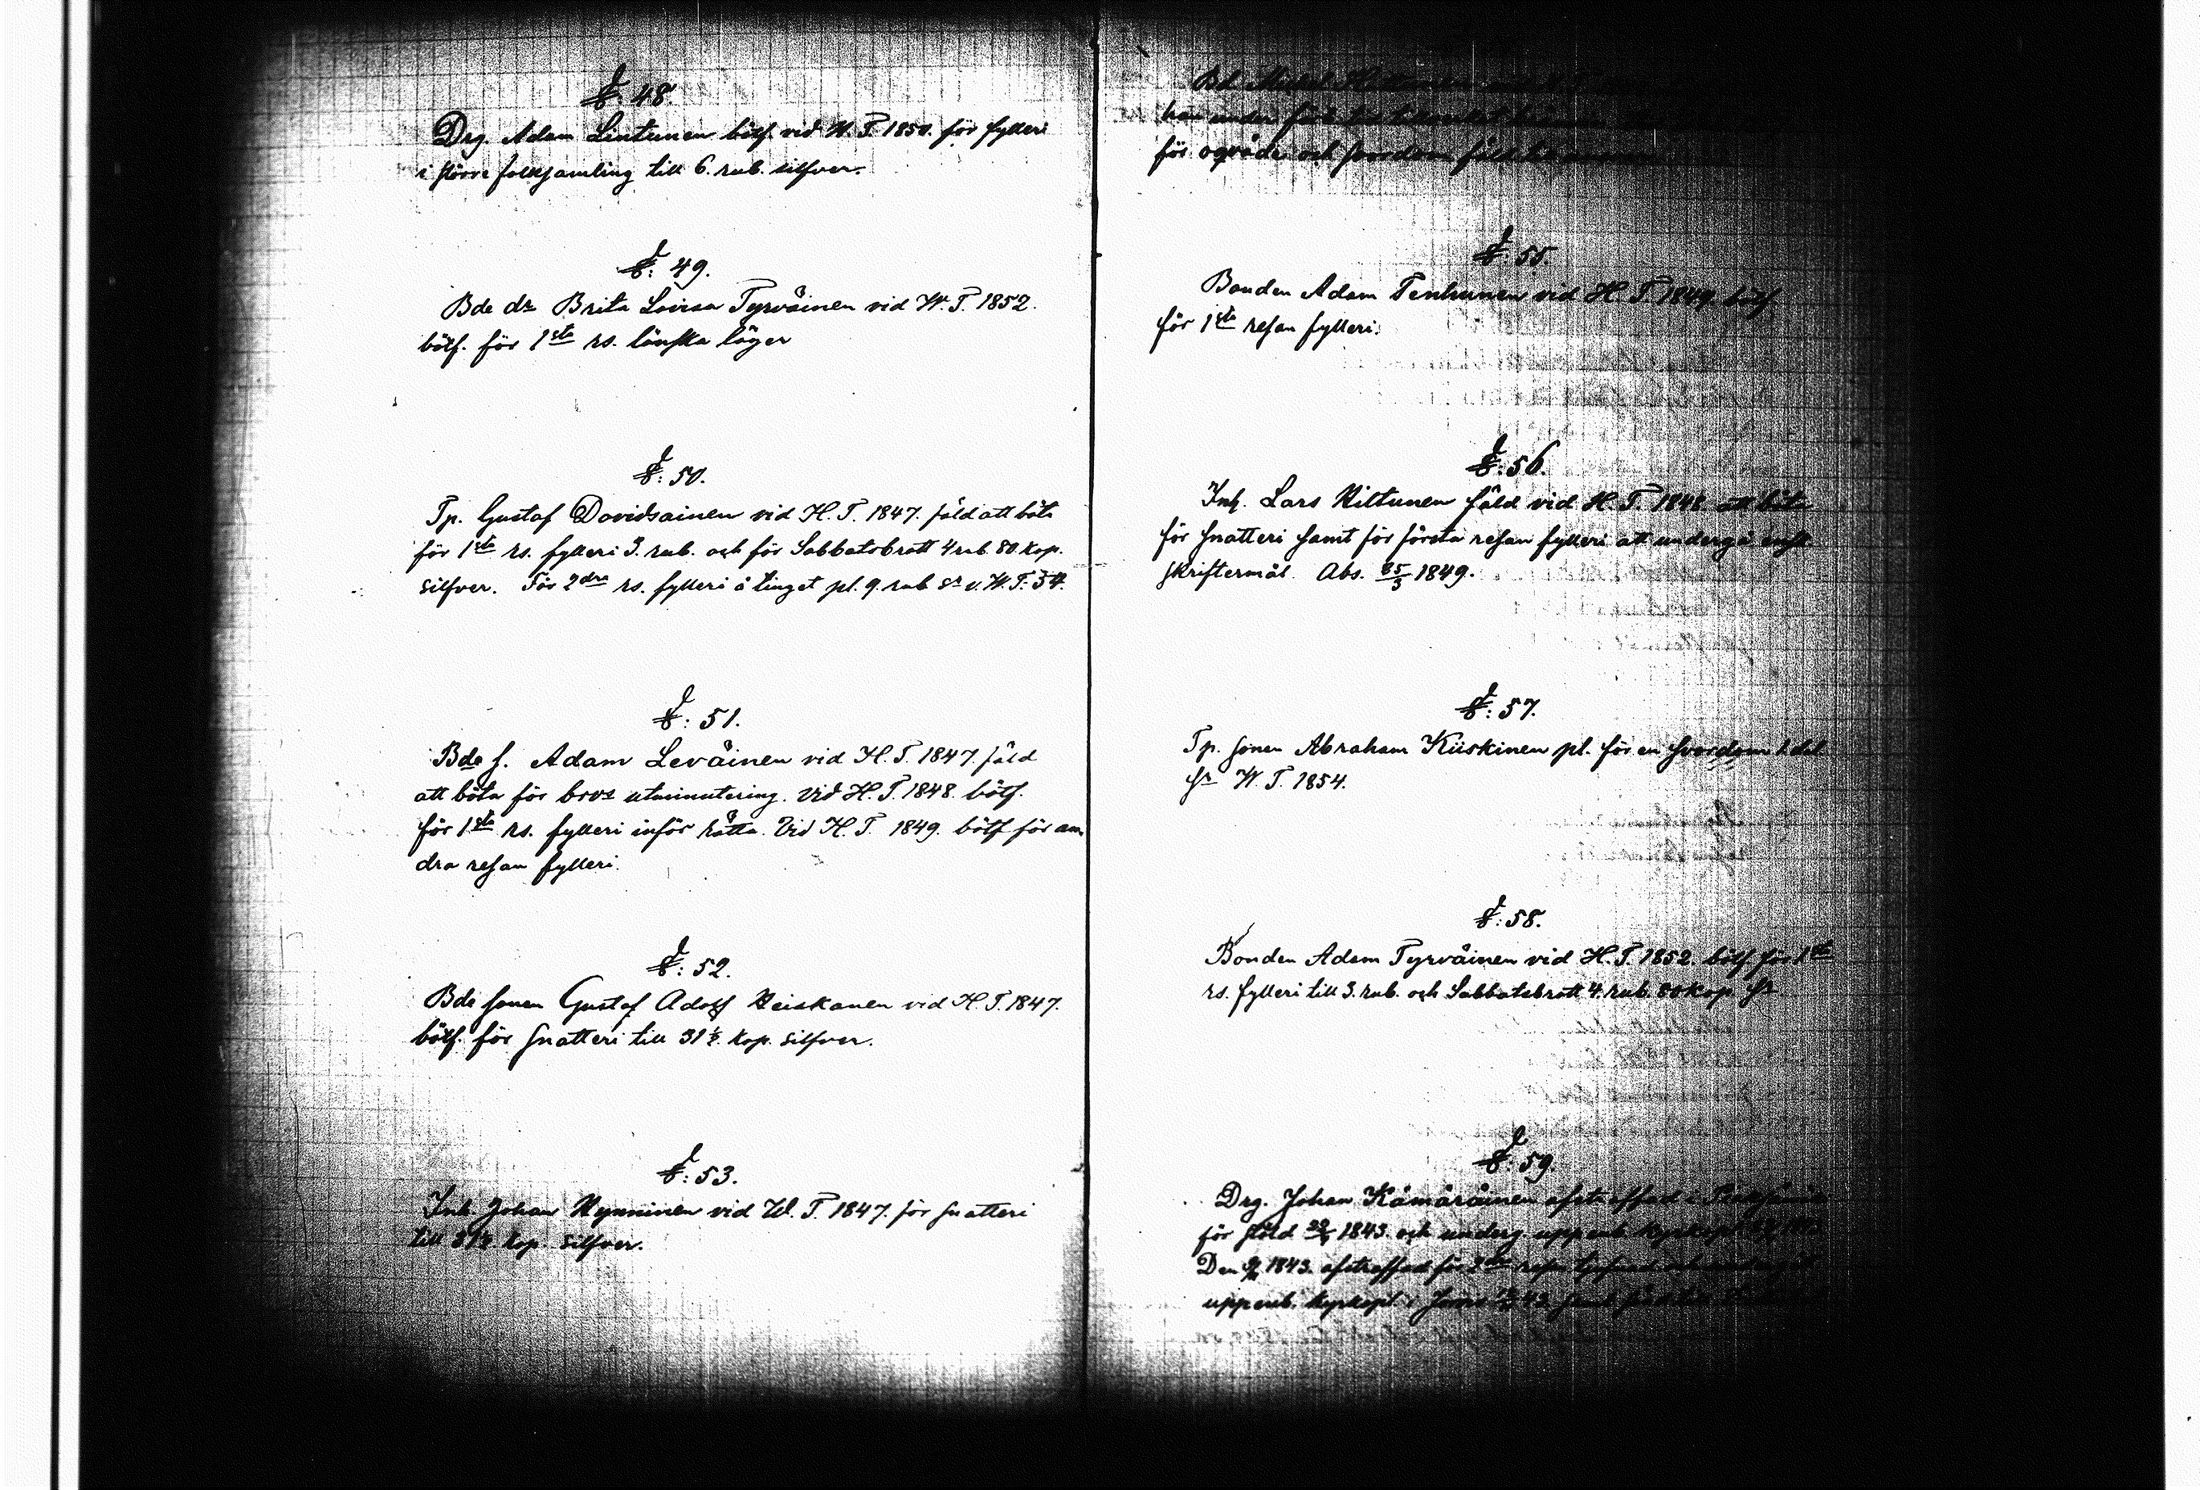 §. 48.
Drg. Adam Lintunen bötf. vid W. T. 1850. för fylleri
i större folksamling till 6. rub. silfver.
§: 49.
Bde dr Brita Lovisa Tyrväinen vid W. T. 1852.
bötf. för 1sta rs. lönska läger
§: 50.
Tp. Gustaf Davidsainen vid H. T. 1847. fäld att böta
för 1sta rs. fylleri 3. rub. och för Sabbatsbrott 4 rub 80. kop.
silfver. För 2dra rs. fylleri å tinget pl. 9. rub sr v. W. T. 54.
§: 51.
Bde s. Adam Leväinen vid H. T. 1847. fäld
att böta för brvs utminutering. Vid H. T. 1848. bötf.
för 1sta rs. fylleri inför rätta. Vid H. T. 1849. bötf för an,
dra resan fylleri.
§: 52.
Bde sonen Gustaf Adolf Heiskanen vid H. T. 1847.
bötf. för snatteri till 31 ½. kop. silfver.
§: 53.
Inh. Johan Hynninen vid W. T. 1847. för snatteri
till 31½. kop. silfver.
Bd.
han under
för oqväde och svordom
§. 55.
Bonden Adam Tenhunen vid H. T. 1849. bötf
för 1sta resan fylleri.
§. 56.
Inh. Lars Hiltunen fäld vid H. T. 1848. att böta
för snatteri samt för första resan fylleri att undergå ensk.
skriftermål. Abs. 25/3 1849.
§: 57.
Tp. sonen Abraham Kiiskinen pl. för en svordom 1. del
sr W. T. 1854.
§: 58.
Bonden Adam Tyrväinen vid H. T. 1852. bötf. för 1sta
rs. fylleri till 3. rub. och Sabbatsbrott 4. rub. 80 kop. sr.
§: 59.
Drg. Johan Kämäräinen afstraffad i
för stöld 1843. och underg. uppenb. kyrkopl.
Den 1843. afstraffad för 2dra resan
uppenb. kyrkopl. i